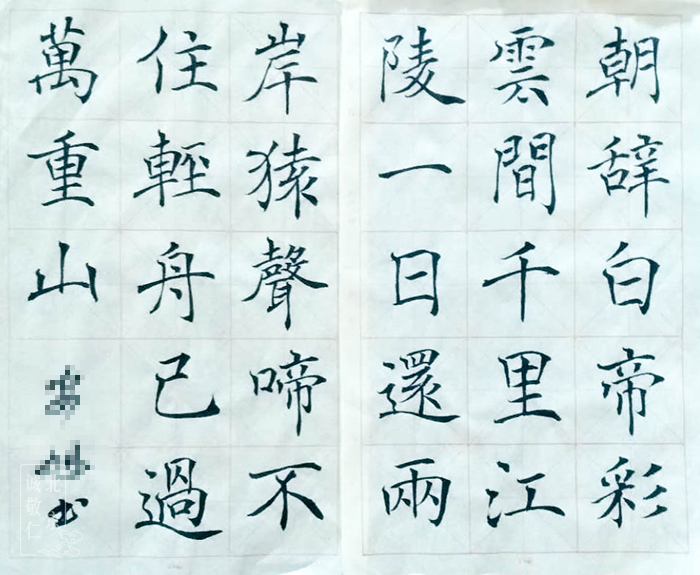 朝辞白帝彩
雲間千里江
陵一日還兩
岸猿聲啼不
住輕舟已過
萬重山
书
誠敬仁